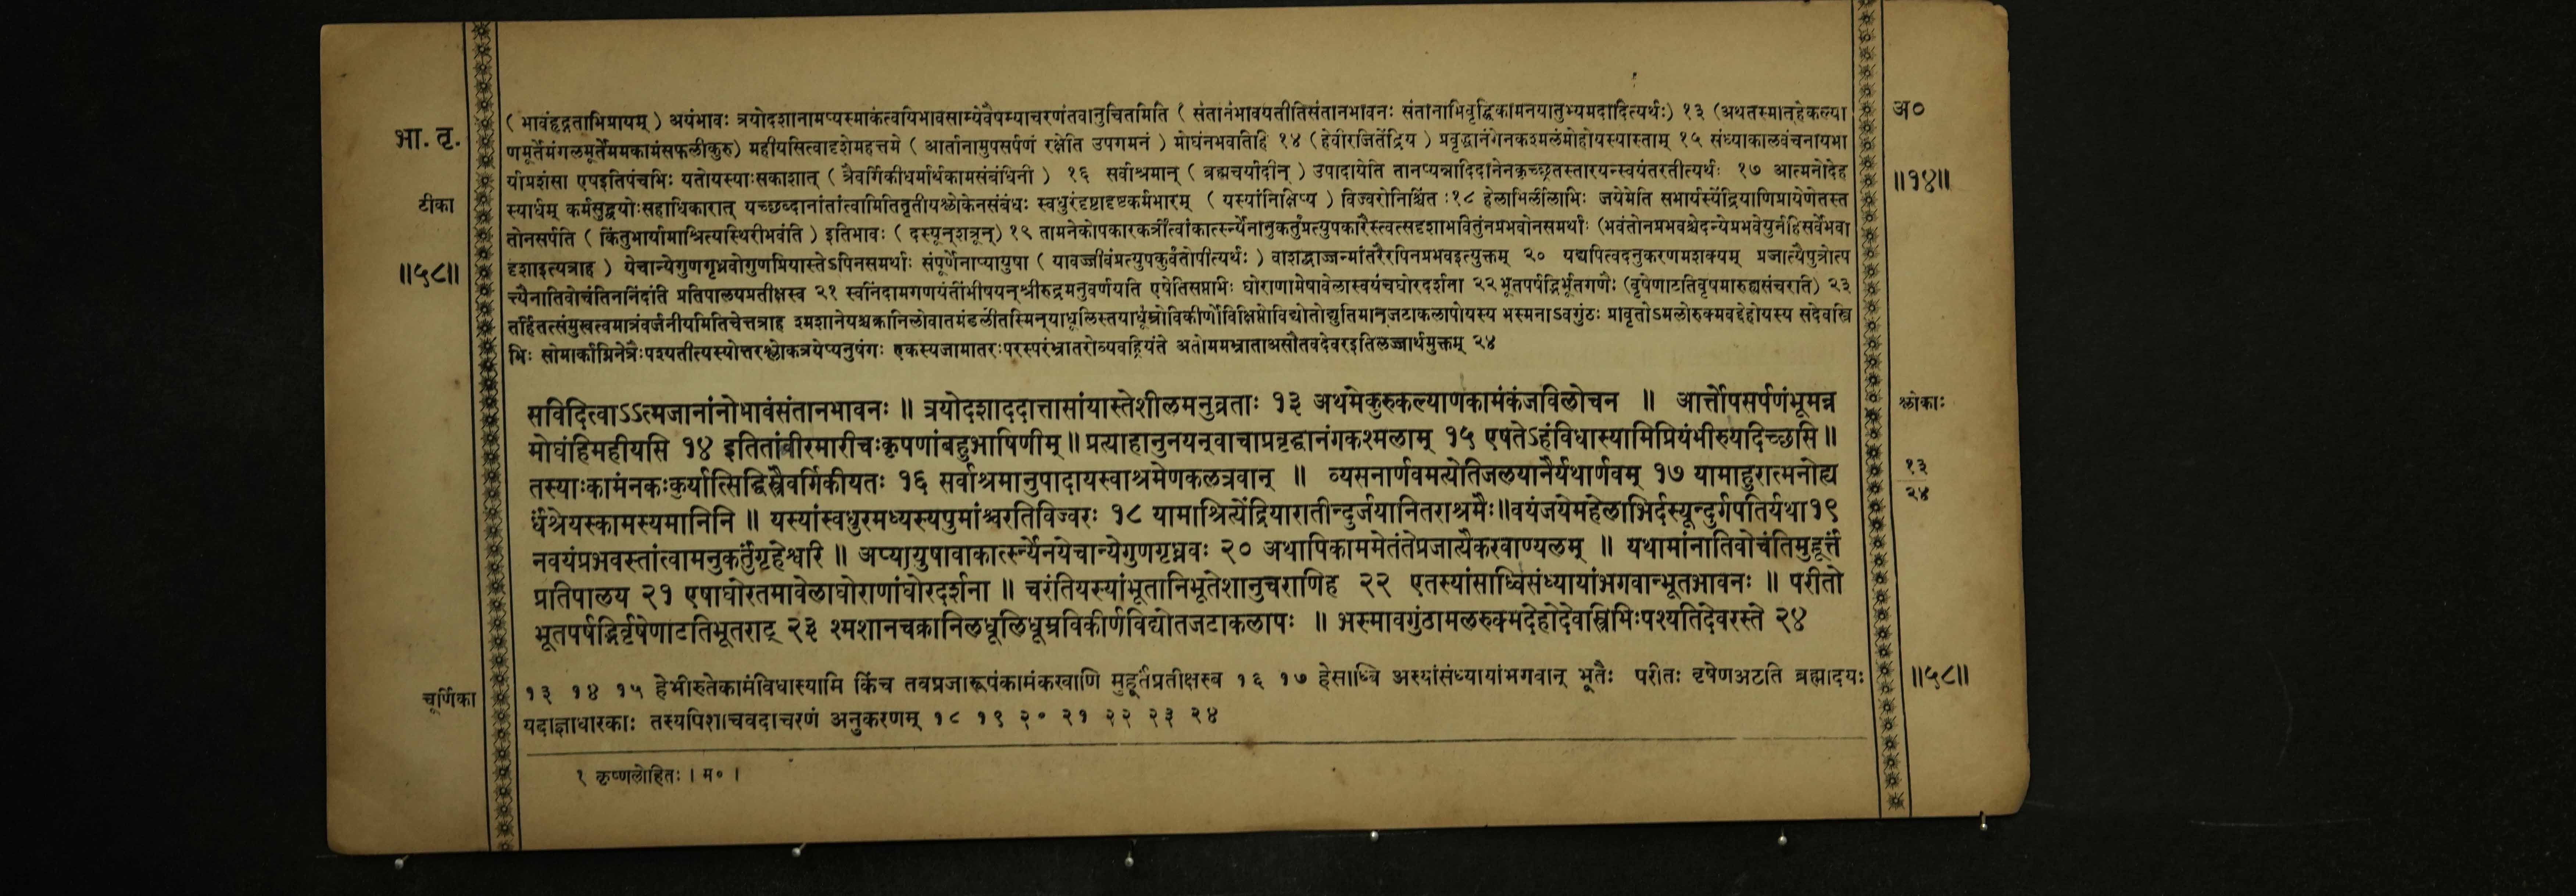 ( भावंहृद्गताभिप्रायम् ) अयंभावः त्रयोदशानामप्यस्माकंत्वयिभावसाम्येवैषम्याचरणंतवानुचितमिति ( संतानंभावयतीतिसंतानभावनः संतानाभिवृद्धिकामनयातुभ्यमदादित्यर्थः) १३ (अथतस्मात्‌हेकल्या
अ०
भा. तृ.
णमूर्तेमंगलमूर्तेममकामंसफलीकुरु) महीयसित्वादृशेमहत्तमे ( आर्तानामुपसर्पणं रक्षेति उपगमनं ) मोघंनभवतिहि १४ (हेवीरजितेंद्रिय ) प्रवृद्धानंगेनकश्मलंमोहोयस्यास्ताम् १५ संध्याकालवंचनायभा
र्याप्रशंसा एषइतिपंचभिः यतोयस्याःसकाशात् ( त्रैवर्गिकीधर्मार्थकामसंबंधिनी ) १६ सर्वाश्रमान् ( ब्रह्मचर्यादीन् ) उपादायेति तानप्यन्नादिदानेनकृच्छ्रतस्तारयन्स्वयंतरतीत्यर्थः १७ आत्मनोदेह
॥१४॥
टीका
स्यार्धम् कर्मसुद्वयोःसहाधिकारात् यच्छब्दानांतांत्वामितितृतीयश्लोकेनसंबंधः स्वधुरंदृष्टादृष्टकर्मभारम् ( यस्यांनिक्षिप्य ) विज्वरोनिश्चिंत :१८ हेलाभिर्लीलाभिः जयेमेति सभार्यस्येंद्रियाणिप्रायेणेतस्त
तोनसर्पंति ( किंतुभार्यामाश्रित्यस्थिरीभवंति ) इतिभावः ( दस्यून्‌शत्रून्) १९ तामनेकोपकारकर्त्रींत्वांकात्स्न्र्येनानुकर्तुंप्रत्युपकारैस्त्वत्सदृशाभवितुंनप्रभवोनसमर्थाः (भवंतोनप्रभवश्चेदन्येप्रभवेयुर्नहिसर्वेभवा
॥५८॥
दृशाइत्यत्राह ) येचान्येगुणगृध्नवोगुणप्रियास्तेऽपिनसमर्थाः संपूर्णेनाप्यायुषा ( यावज्जीवंप्रत्युपकुर्वंतोपीत्यर्थः ) वाशद्बाज्जन्मांतरैरपिनप्रभवइत्युक्तम् २० यद्यपित्वदनुकरणमशक्यम् प्रजात्यैपुत्रोत्प
त्त्यैनातिवोचंतिननिंदंति प्रतिपालयप्रतीक्षस्व २१ स्वनिंदामगणयंतींभीषयन्‌श्रीरुद्रमनुवर्णयति एषेतिसप्तभिः घोराणामेषावेलास्वयंचघोरदर्शना २२ भूतपर्षद्भिर्भूतगणैः (वृषेणाटतिवृषमारुह्यसंचरति) २३
तर्हितत्संमुखत्वमात्रंवर्जनीयमितिचेत्तत्राह श्मशानेयश्चक्रानिलोवातमंडलीतस्मिन्‌याधूलिस्तयाधूंम्रोविकीर्णोविक्षिप्तोविद्योतोद्युतिमान्‌जटाकलापोयस्य भस्मनाऽवगुंठः प्रावृतोऽमलोरुक्मवद्देहोयस्य सदेवस्त्रि
भिः सोमार्काग्निनेत्रैःपश्यतीत्यस्योत्तरश्लोकत्रयेप्यनुषंगः एकस्यजामातरःपरस्परंभ्रातरोव्यवह्रियंते अतोममभ्राताअसौतवदेवरइतिलज्जार्थमुक्तम् २४
सविदित्वाऽऽत्मजानांनोभावंसंतानभावनः ॥ त्रयोदशाददात्तासांयास्तेशीलमनुव्रताः १३ अथमेकुरुकल्याणकामंकंजविलोचन ॥ आर्त्तोपसर्पणंभूमन्न
श्लोकाः
मोघंहिमहीयसि १४ इतितांवीरमारीचःकृपणांबहुभाषिणीम् ॥ प्रत्याहानुनयन्‌वाचाप्रवृद्धानंगकश्मलाम् १५ एषतेऽहंविधास्यामिप्रियंभीरुयदिच्छसि ॥
तस्याःकामंनकःकुर्यात्सिद्धिस्त्रैवर्गिकीयतः १६ सर्वाश्रमानुपादायस्वाश्रमेणकलत्रवान् ॥ व्यसनार्णवमत्येतिजलयानैर्यथार्णवम् १७ यामाहुरात्मनोह्य
१३
२४
र्धंश्रेयस्कामस्यमानिनि ॥ यस्यांस्वधुरमध्यस्यपुमांश्चरतिविज्वरः १८ यामाश्रित्येंद्रियारातीन्दुर्जयानितराश्रमैः॥वयंजयेमहेलाभिर्दस्यून्दुर्गपतिर्यथा१९
नवयंप्रभवस्तांत्वामनुकर्तुंगृहेश्वरि ॥ अप्यायुषावाकात्स्न्र्येनयेचान्येगुणगृध्नवः २० अथापिकाममेतंतेप्रजात्यैकरवाण्यलम् ॥ यथामांनातिवोचंतिमुहूर्त्तं
प्रतिपालय २१ एषाघोरतमावेलाघोराणांघोरदर्शना ॥ चरंतियस्यांभूतानिभूतेशानुचराणिह २२ एतस्यांसाध्विसंध्यायांभगवान्भूतभावनः ॥ परीतो
भूतपर्षद्भिर्वृषेणाटतिभूतराट् २३ श्मशानचक्रानिलधूलिधूम्रविकीर्णविद्योतजटाकलापः ॥ भस्मावगुंठामलरुक्मदेहोदेवस्त्रिभिःपश्यतिदेवरस्ते २४
चूर्णिका
१३ १४ १५ हेभीरुतेकामंविधास्यामि किंच तवप्रजारूपंकामंकरवाणि मुहूर्तंप्रतीक्षस्व १६ १७ हेसाध्वि अस्यांसंध्यायांभगवान् भूतैः परीतः वृषेणअटति ब्रह्मादयः
॥५८॥
यदाज्ञाधारकाः तस्यपिशाचवदाचरणं अनुकरणम् १८ १९ २० २१ २२ २३ २४
१ कृष्णलोहितः । म० ।